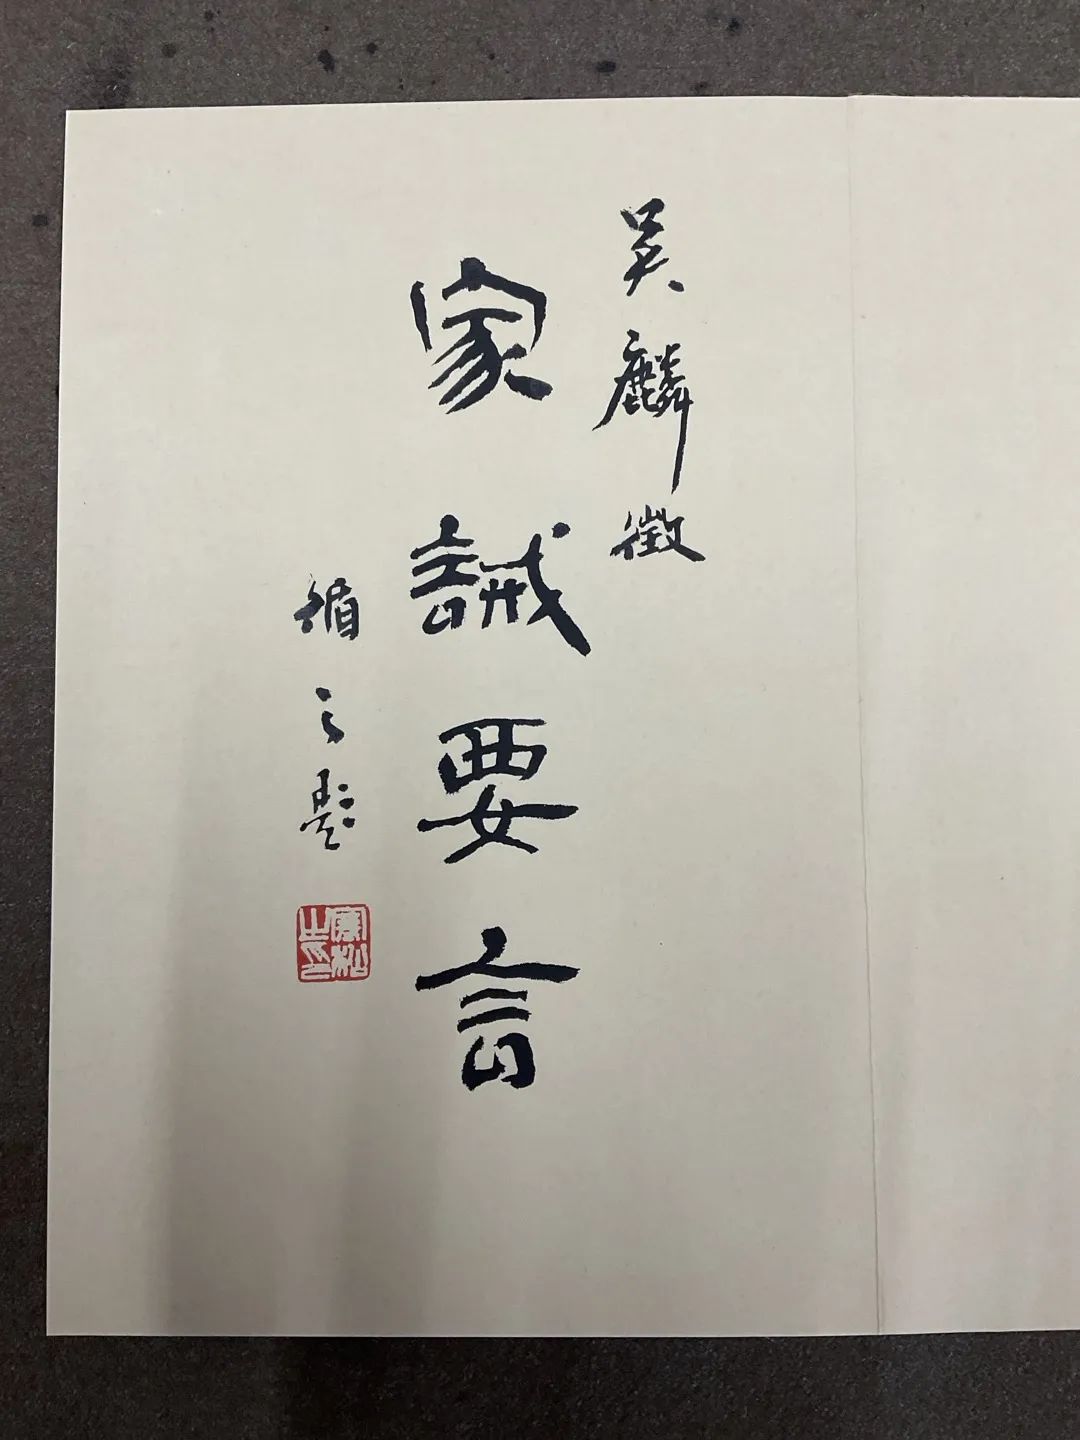 吴麟徵
家誡要言
循之题